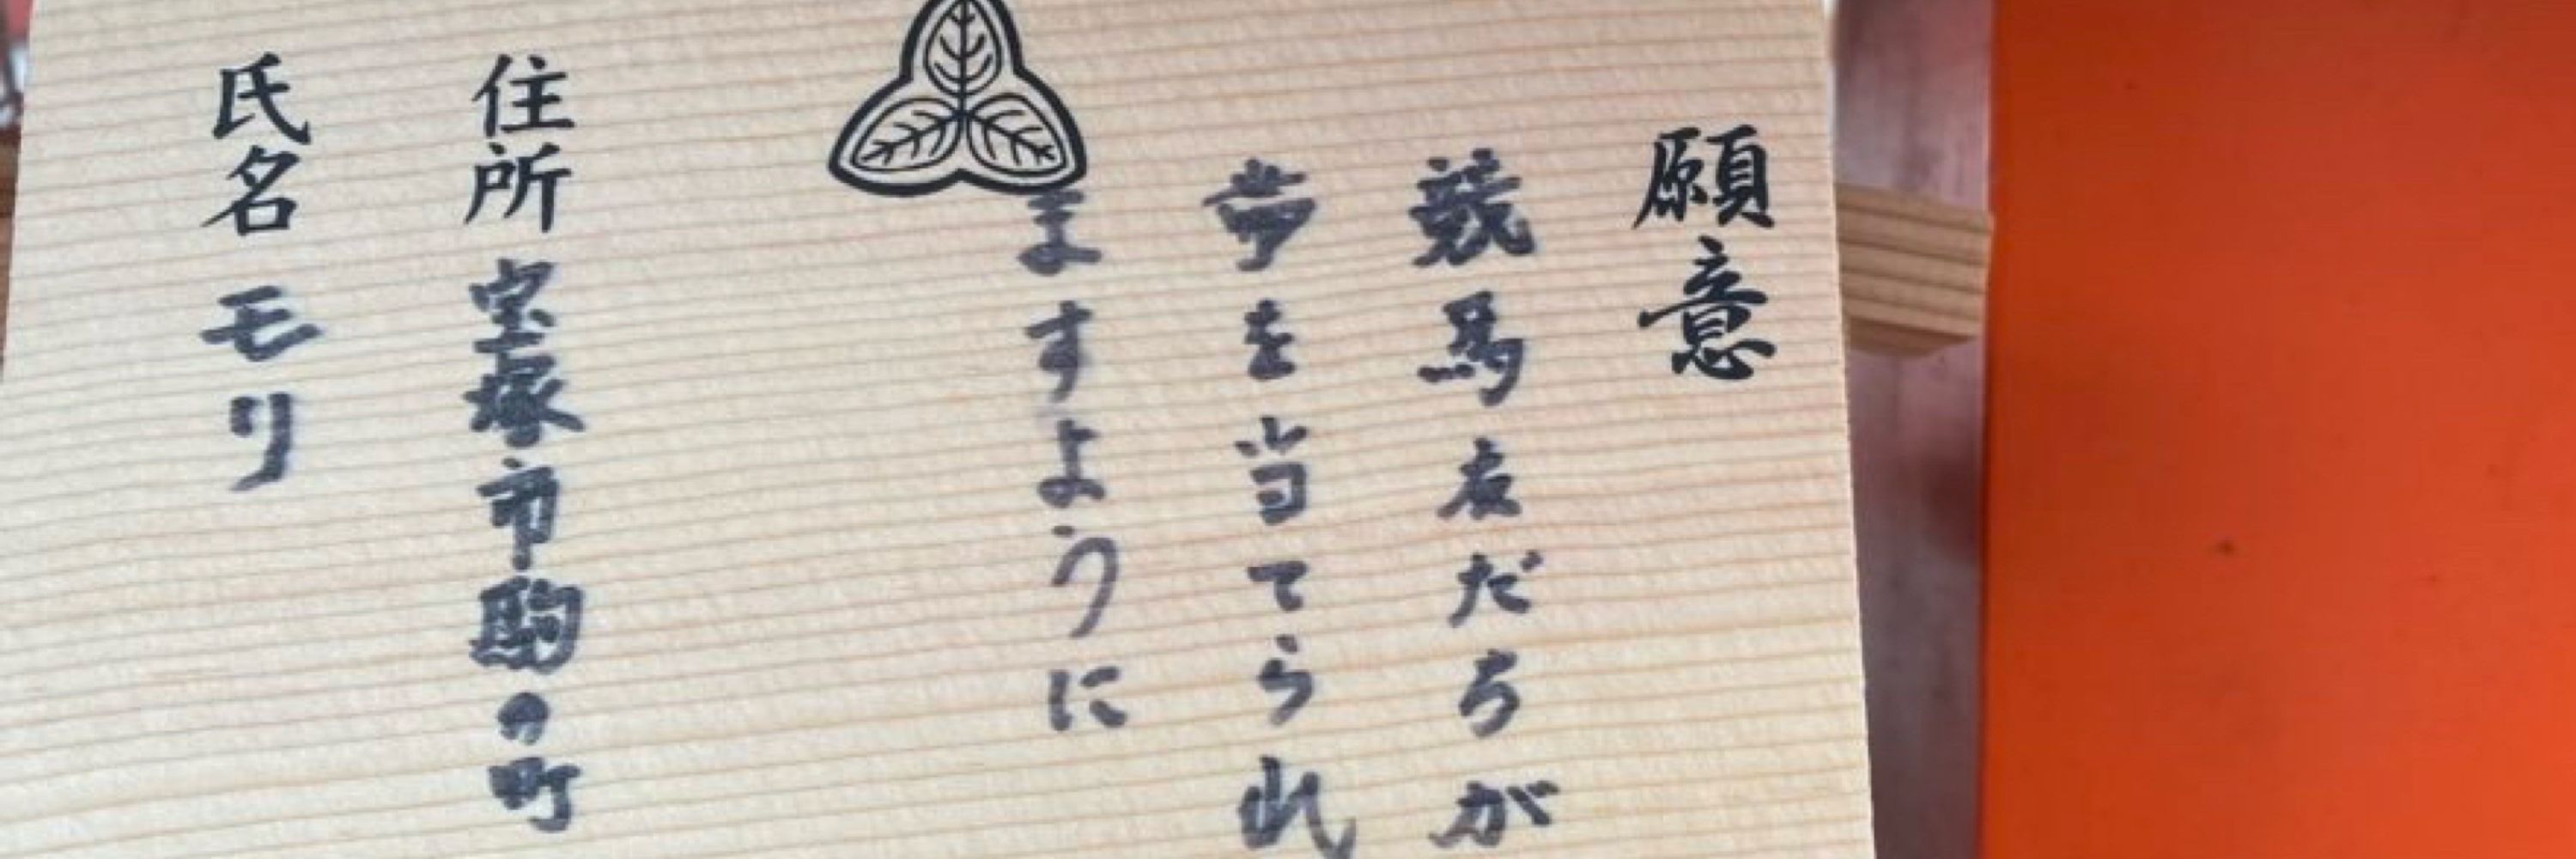 願意
競馬友だちが
夢を当てられ
ますように
住所 宝塚市駒の町
氏名 モリ